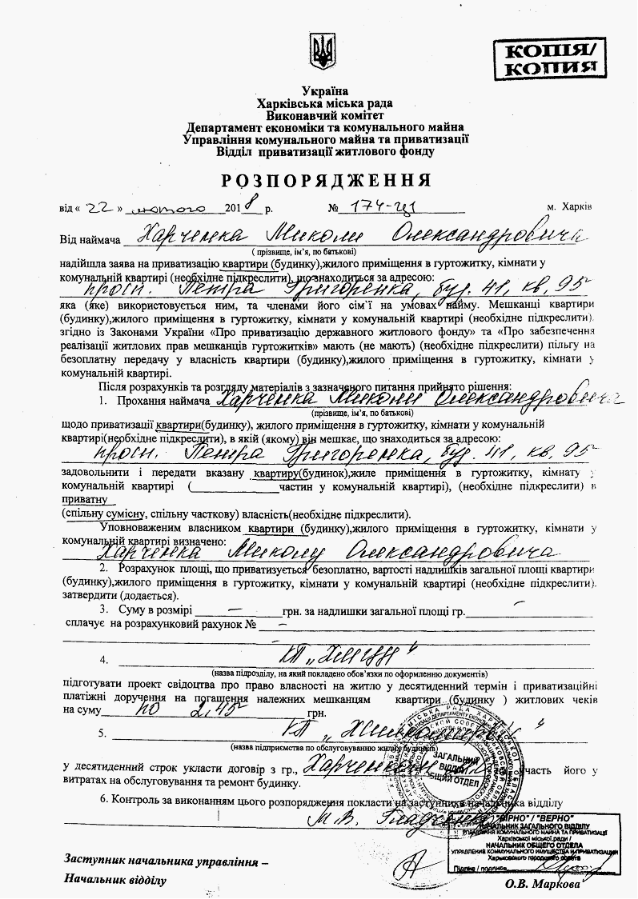 КОПІЯ/
КОПИЯ
Україна
Харківська міська рада
Виконавчий комітет
Департамент економіки та комунального майна
Управління комунального майна та приватизації
Відділ приватизації житлового фонду
РОЗПОРЯДЖЕННЯ
від « 22 » лютого 2018 р. № 174-ц1 м. Харків
Від наймача Харченка Миколи Олександровича
( прізвище, ім'я, по батькові)
надійшла заява на приватизацію квартири (будинку),жилого приміщення в гуртожитку, кімнати у
комунальній квартирі (необхідне підкреслити), що знаходиться за адресою:
просп. Петра Григоренка, буд. 41, кв. 95
яка (яке) використовується ним, та членами його сім'ї на умовах найму. Мешканці квартири
(будинку),жилого приміщення в гуртожитку, кімнати у комунальній квартирі (необхідне підкреслити)
згідно із Законами України «Про приватизацію державного житлового фонду» та «Про забезпечення
реалізації житлових прав мешканців гуртожитків» мають (не мають) (необхідне підкреслити) пільгу на
безоплатну передачу у власність квартири (будинку),жилого приміщення в гуртожитку, кімнати у
комунальній квартирі.
Після розрахунків та розгляду матеріалів з зазначеного питання прийнято рішення:
1. Прохання наймача Харченка Миколи Олександровича
(прізвище, ім'я, по батькові)
щодо приватизації квартири(будинку), жилого приміщення в гуртожитку, кімнати у комунальній
квартирі(необхідне підкреслити), в якій (якому) він мешкає, що знаходиться за адресою:
просп. Петра Григоренка, буд. 41, кв. 95
задовольнити і передати вказану квартиру(будинок),жиле приміщення в гуртожитку, кімнату у
комунальній квартирі (____________частин у комунальній квартирі), (необхідне підкреслити) в
приватну
(спільну сумісну, спільну часткову) власність(необхідне підкреслити).
Уповноваженим власником квартири (будинку),жилого приміщення в гуртожитку, кімнати у
комунальній квартирі визначено:
Харченка Миколу Олександровича
2. Розрахунок площі, що приватизується безоплатно, вартості надлишків загальної площі квартири
(будинку),жилого приміщення в гуртожитку, кімнати у комунальній квартирі (необхідне підкреслити)
затвердити (додається).
3. Суму в розмірі — грн. за надлишки загальної площі гр. –
сплачує на розрахунковий рахунок № –
4. КП
(назва підрозділу, на який покладено обов'язки по оформленню документів)
підготувати проект свідоцтва про право власності на житло у десятиденний термін і приватизаційні
платіжні доручення на погашення належних мешканцям квартири (будинку ) житлових чеків
на суму по 2,45 грн.
5. КП
(назва підприємства по обслуговуванню жилих будинків)
у десятиденний строк укласти договір з гр., Харченком участь його у
витратах на обслуговування та ремонт будинку.
6. Контроль за виконанням цього розпорядження покласти на заступника начальника відділу
М.В.
ЗАГАЛЬНИЙ
ВІДДІЛ
ОБЩИЙ ОТДЕЛ
"ВІРНО" / "ВЕРНО"
НАЧАЛЬНИК ЗАГАЛЬНОГО ВІДДІЛУ
УПРАВЛІННЯ КОМУНАЛЬНОГО МАЙНА ТА ПРИВАТИЗАЦІЇ
Харківської міської ради /
НАЧАЛЬНИК ОБЩЕГО ОТДЕЛА
УПРАВЛЕНИЕ КОММУНАЛЬНОГО ИМУЩЕСТВА И ПРИВАТИЗАЦИИ
Харьковского городского совета
Підпис / подпись
Заступник начальника управління –
Начальник відділу О.В. Маркова